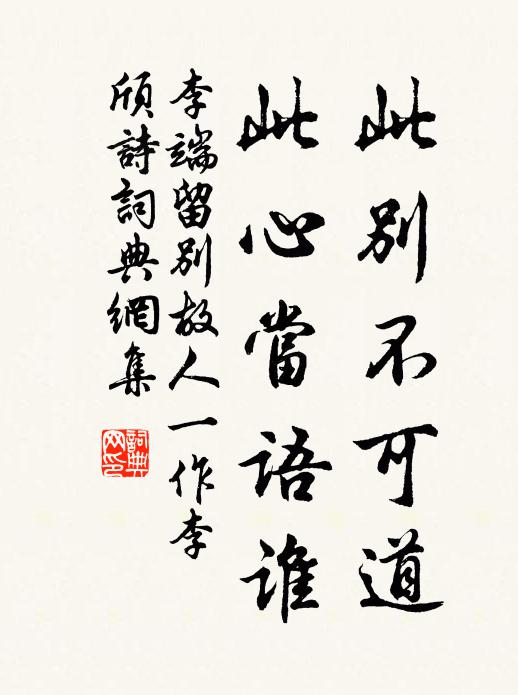 此別不可道
此心當語誰
李端留別故人一作李
頎詩詞典網集
詞典
网印